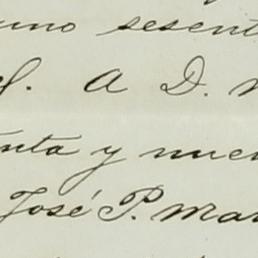 uno sesent
S. A D. M
enta y nuev
José P. Mar